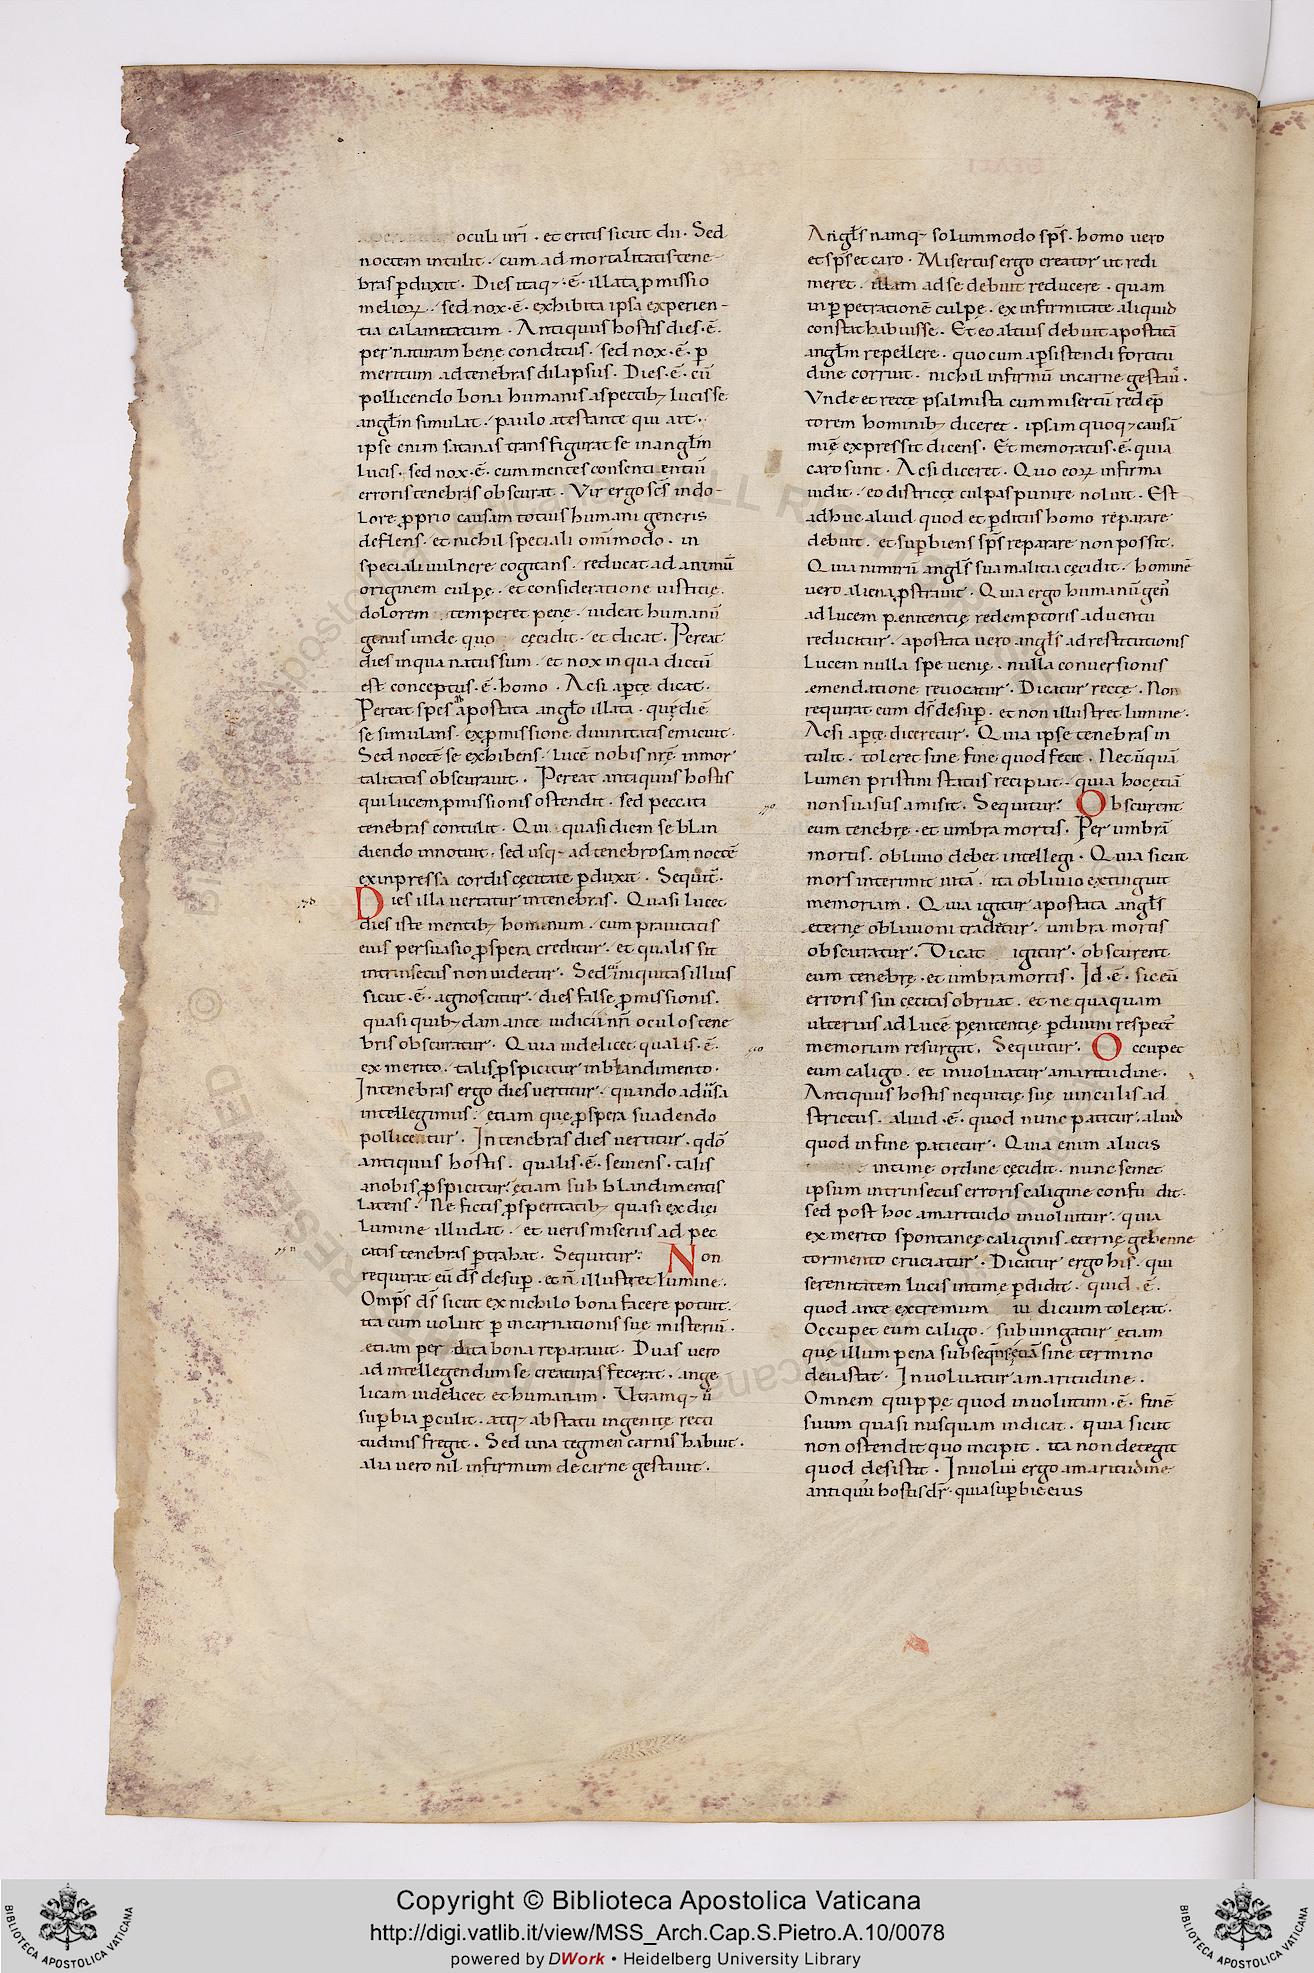 oculi urı̄ · et eritis sicut dii · Sed
noctem intulit · cum ad mortalitatis tene-
bras ꝑduxit · Dies itaq; · ē · illata ꝓmissio
melioꝝ · sed nox · ē · exhibita ipsa experien-
tia calamitatum · Antiquus hostis dies · ē ·
per naturam bene conditus · sed nox · ē · ꝑ
meritum ad tenebras dilapsus · Dies · ē · cū
pollicendo bona humanis aspectib; lucis se
angl̄m simulat · paulo atestante qui ait ·
ipse enim satanas transfigurat se in angl̄m
lucis · sed nox · ē · cum mentes consentientiū
erroris tenebris obscurat · Vir ergo sc̄s in do-
lore ꝓprio causam totius humani generis
deflens · et nichil speciali om̄imodo · in
speciali uulnere cogitans · reducat ad animū
originem culpę · et consideratione iustitię
dolorem temperet penę · uideat humanū
genus unde quo cęcidit · et dicat · Pereat
dies in qua natus sum · et nox in qua dictū
est conceptus · ē · homo · Acsi aꝑte dicat ·
Pereat spes ab apostata anglo illata · quę diē
se simulans · ex ꝓmissione diuinitatis emicuit ·
Sed noctē se exhibens · lucē nobis nrę̄ inmor
talitatis obscurauit · Pereat antiquus hostis
qui lucem ꝓmissionis ostendit · sed peccati
tenebras contulit · Qui quasi diem se blan
diendo innotuit · sed usq; ad tenebrosam noctē
ex inpressa cordis cęcitate ꝑduxit · Sequit̄ ·
Dies illa uertatur in tenebras · Quasi lucet
dies iste mentib; hominum · cum prauitatis
eius persuasio ꝓspera creditur · et qualis sit
intrinsecus non uidetur · Sed dū iniquitas illius
sicut · ē · agnoscitur · dies falsę ꝓmissionis ·
quasi quib;dam ante iudicii nr̄i oculos tene
bris obscuratur · Quia uidelicet qualis · ē ·
ex merito · talis ꝓspicitur in blandimento ·
In tenebras ergo dies uertitur · quando aduersa
intellegimus · etiam quę ꝓspera suadendo
pollicentur · In tenebras dies uertitur · qdō
antiquus hostis · qualis · ē · seuiens · talis
a nobis ꝓspicitur · etiam sub blandimentis
latens · Ne fictis ꝓsperitatib; quasi ex diei
lumine illudat · et ueris miseriis ad pec
catis tenebras ꝑtrahat · Sequitur · Non
requirat eū ds̄ desuꝑ · et n̄ illustret lumine ·
Omp̄s ds̄ sicut ex nichilo bona facere potuit ·
ita cum uoluit ꝑ incarnationis suę misteriū ·
etiam perdita bona reparauit · Duas uero
ad intellegendum se creaturas fecerat · ange
licam uidelicet et humanam · Utramq; ū
suꝑbia ꝑculit · atq; ab statu ingenitę recti
tudinis fregit · Sed una tegmen carnis habuit ·
alia uero nil infirmum de carne gestauit ·
Angl̄s namq; solummodo sp̄s · homo uero
et sp̄s et caro · Misertus ergo creator ut redi
meret · illam ad se debuit reducere · quam
in ꝑpetrationē culpę · ex infirmitate aliquid
constat habuisse · Et eo altius debuit apostatā
angl̄m repellere · quo cum a ꝑsistendi fortitu
dine corruit · nichil infirmū in carne gestau̇ ·
Vnde et recte psalmista cum misertū redēp
torem hominib; diceret · ipsam quoq; causā
mię̄ expressit dicens · Et memoratus · ē · quia
caro sunt · Acsi diceret · Quo eoꝝ infirma
uidit · eo districte culpas punire noluit · Est
adhuc aliud quod et ꝑditus homo reparare
debuit · et suꝑbiens sp̄s reparare non possit ·
Quia nimirū angl̄s sua malitia cęcidit · hominē
uero aliena ꝓstrauit · Quia ergo humanū gen̄
ad lucem penitentię redemptoris aduentu
reducitur · apostata uero angl̄s ad restitutionis
lucem nulla spe uenię · nulla conuersionis
emendatione reuocatur · Dicatur recte · Non
requirat eum ds̄ desuꝑ · et non illustret lumine ·
Acsi aꝑte diceretur · Quia ipse tenebras in
tulit · toleret sine fine quod fecit · Nec ūquā
lumen pristini status recipiat · quia hoc etiā
non suasus amisit · Sequitur · Obscurent
eum tenebrę · et umbra mortis · Per umbrā
mortis · obliuio debet intellegi · Quia sicut
mors interimit uitā · ita obliuio extinguit
memoriam · Quia igitur apostata angl̄s
eternę obliuioni traditur · umbra mortis
obscuratur · Dicat igitur · obscurent
eum tenebrę · et umbra mortis · Id · ē · sic eū
erroris sui cęcitas obruat · et nequaquam
ulterius ad lucē pęnitentię ꝑ diuini respect̄
memoriam resurgat · Sequitur · Occupet
eum caligo · et inuoluatur amaritudine ·
Antiquus hostis nequitię suę uinculis ad
strictus · aliud · ē · quod nunc patitur · aliud
quod in fine patietur · Quia enim a lucis
intimę ordine cęcidit · nunc semet
ipsum intrinsecus erroris caligine confundit ·
sed post hoc amaritudo inuoluitur · quia
ex merito spontaneę caliginis · eternę gehenne
tormento cruciatur · Dicatur ergo his · qui
serenitatem lucis intimę ꝑdidit · quid · ē ·
quod ante extremum iudicium tolerat ·
Occupet eum caligo · subiungatur etiam
quę illum pena subsequens etiā sine termino
deuastat · Inuoluatur amaritudine ·
Omnem quippe quod inuolutum · ē · finē
suum quasi nusquam indicat · quia sicut
non ostendit quo incipit · ita non detegit
quod desistit · Inuolui ergo amaritudine
antiquū hostis dr̄ · quia suꝑbię eius
Copyright © Biblioteca Apostolica Vaticana
http://digi.vatlib.it/view/MSS_Arch.Cap.S.Pietro.A.10/0078
powered by DWork • Heidelberg University Library
BIBLIOTECA APOSTOLICA VATICANA
BIBLIOTECA APOSTOLICA VATICANA